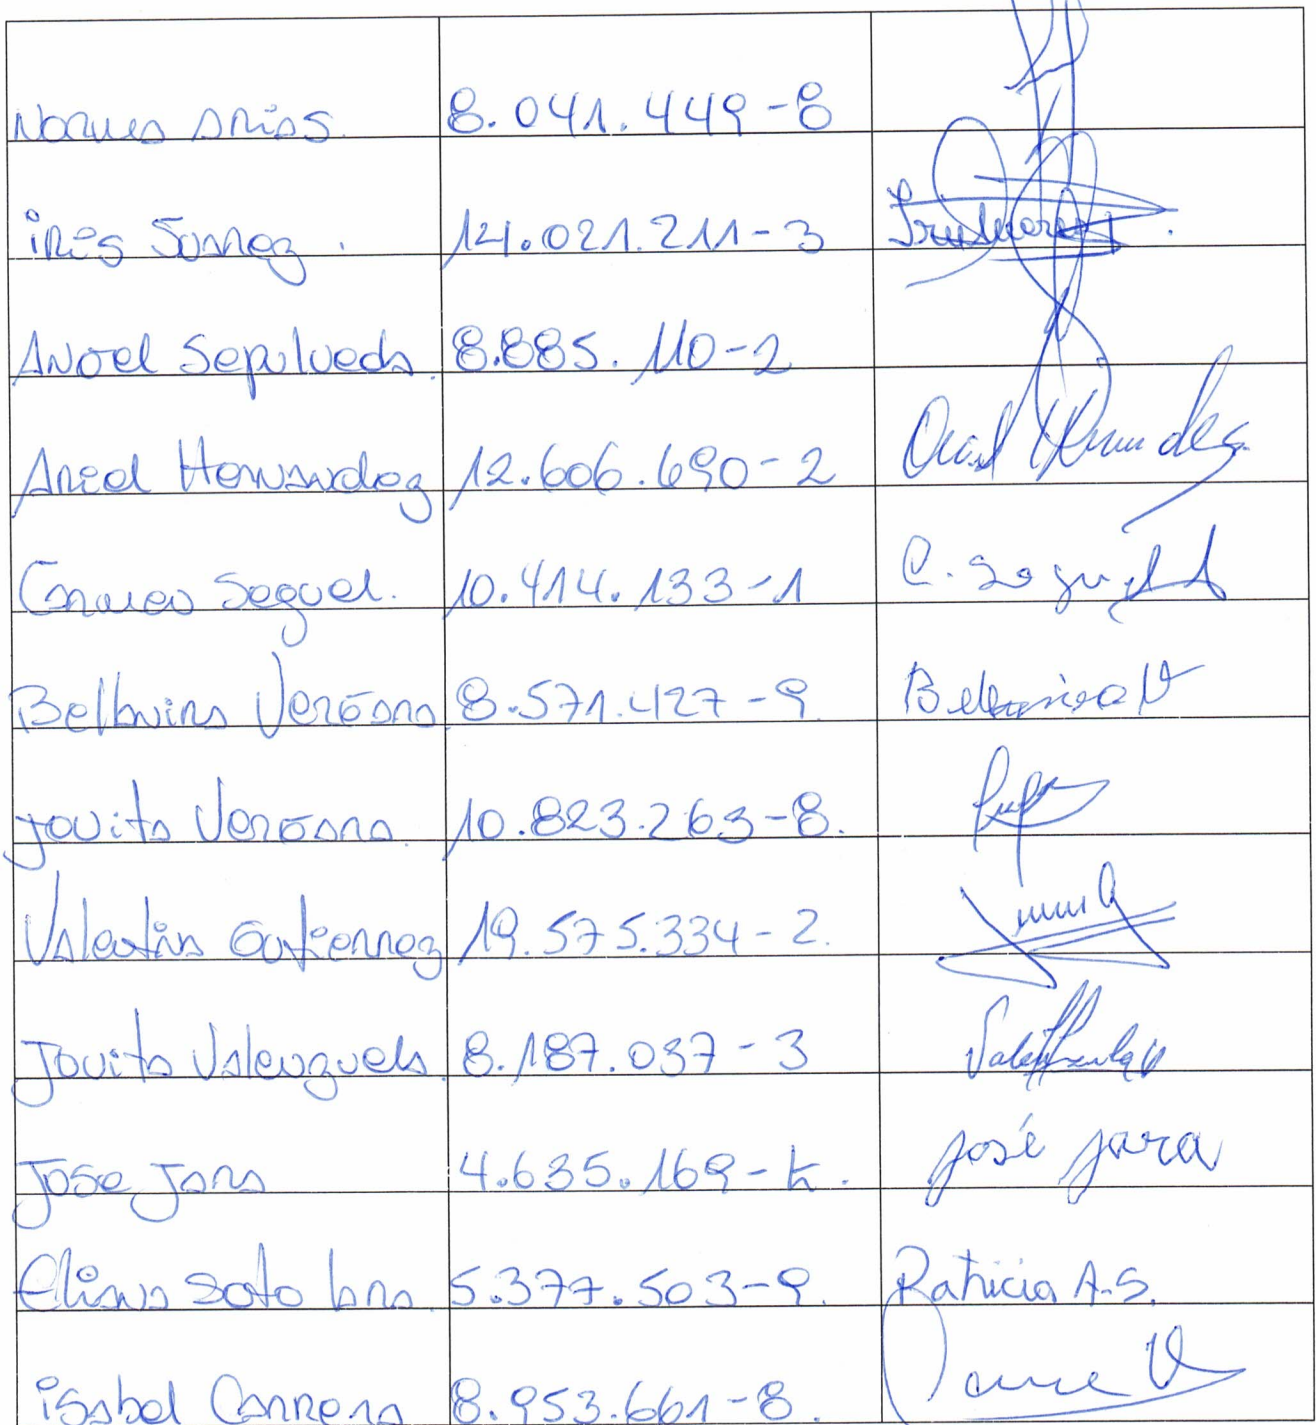 Norma Arias. 8.041.449-8
iRES Suarez. 14.021.211-3
Angel Sepulveda. 8.885.110-2
Ariel Hernandez 12.606.690-2
Carmen Seguel. 10.414.133-1 C. Seguel
Belbina Vergara 8.571.427-9 Belbinia V
Jovita Vergara 10.823.263-8.
Valentin Gutierrez 19.575.334-2.
Jovita Valenzuela 8.187.037-3
Jose Jara 4.635.169-k. José Jara
Eliana Soto 5.377.503-9. Patricia A.S.
isabel Carrera 8.953.661-8.